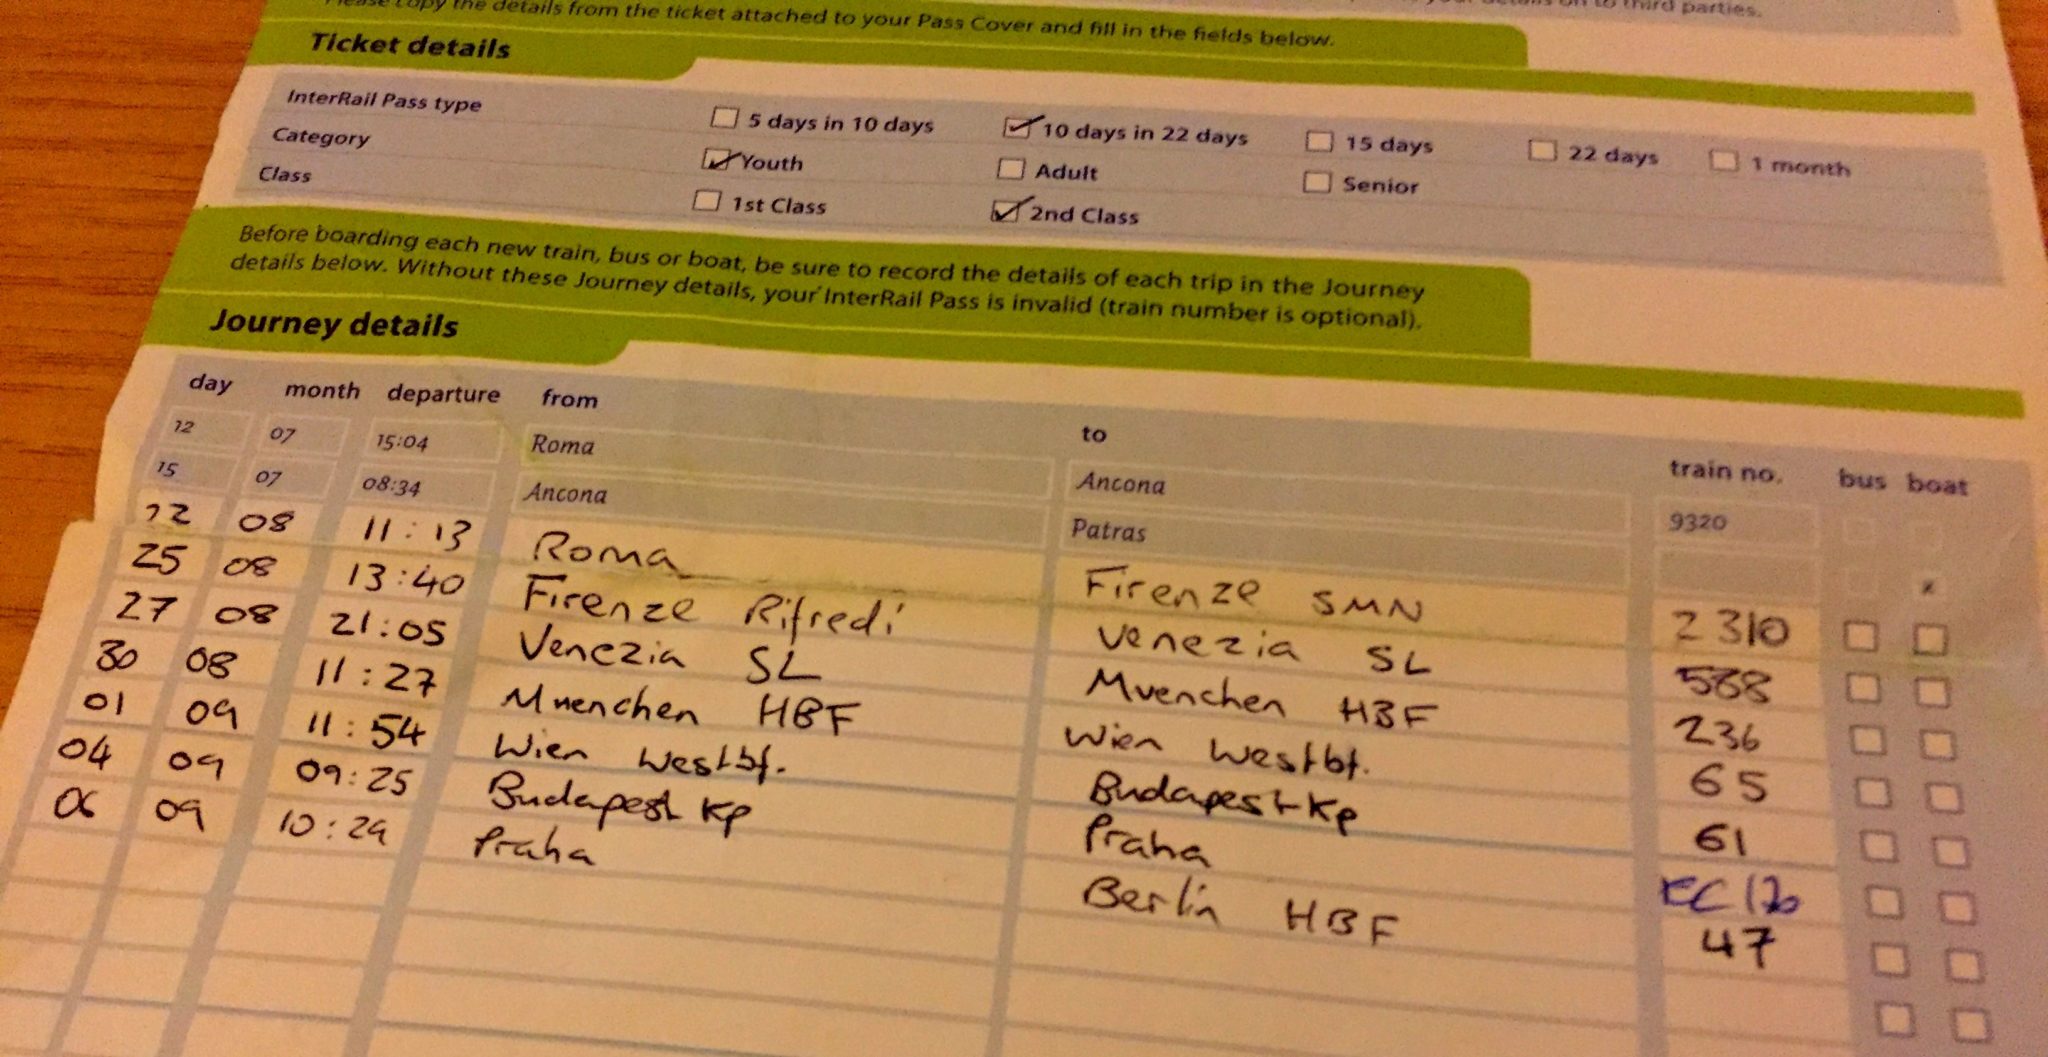 Please copy the details from the ticket attached to your Pass Cover and fill in the fields below.
on to third parties.
Ticket details
InterRail Pass type 5 days in 10 days 10 days in 22 days 15 days 22 days 1 month
Category Youth Adult Senior
Class 1st Class 2nd Class
Before boarding each new train, bus or boat, be sure to record the details of each trip in the Journey
details below. Without these Journey details, your InterRail Pass is invalid (train number is optional).
Journey details
day month departure from to train no. bus boat
12 07 15:04 Roma Ancona 9320
15 07 08:34 Ancona Patras x
08 11:13 Roma Firenze SMN 2310
25 08 13:40 Firenze Rifredi Venezia SL 588
27 08 21:05 Venezia SL Muenchen HBF 236
30 08 11:27 Muenchen HBF Wien Westbf. 65
01 09 11:54 Wien Westbf. Budapest Kp 61
04 09 09:25 Budapest Kp Praha
06 09 10:29 Praha Berlin HBF 47